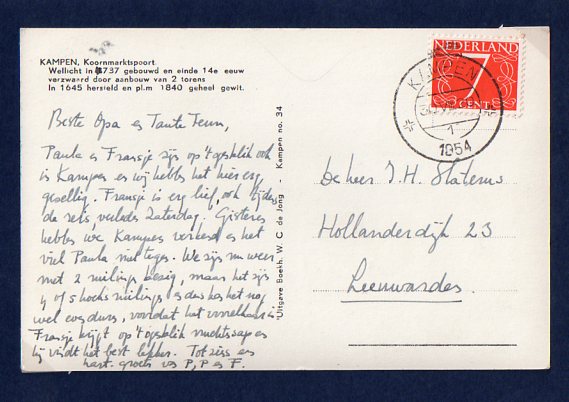 KAMPEN, Koornmarktspoort.
Wellicht in 1737 gebouwd en einde 14e eeuw
verzwaard door aanbouw van 2 torens
In 1645 hersteld en pl.m 1840 geheel gewit.
Beste Opa en Tante Teun,
Paula en Fransje zijn op 't ogenblik ook
in Kampen en wij hebben het hier erg
gezellig. Fransje is erg lief, ook tijdens
de reis, verleden Zaterdag. Gisteren
hebben we Kampen verkend en het
viel Paula niet tegen. We zijn nu weer
met 2 bezig, maar het zijn
of en dus kan het nog
wel even duren, voordat het
Fransje krijgt op 't ogenblik vruchtesap en
hij vindt het best lekker. Tot ziens en
hart. groeten van P, P en F.
Uitgave Boekh. W. C. de Jong - Kampen no. 34
NEDERLAND
7
CENT
KAMPEN
1
1954
de heer J. H. Staterus
Hollanderdijk 23
Leeuwarden